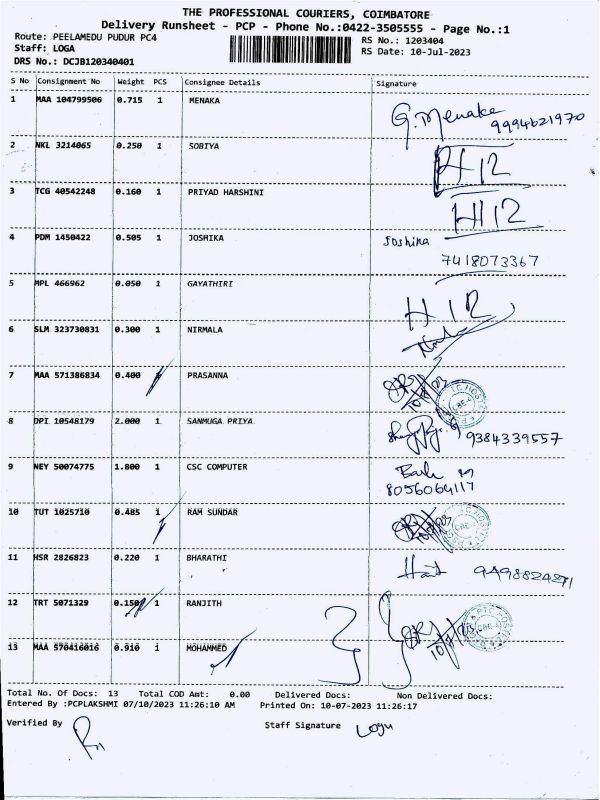 THE PROFESSIONAL COURIERS, COIMBATORE
Delivery Runsheet - PCP - Phone No.:0422-3505555 - Page No.:1
Route: PEELAMEDU PUDUR PC4 RS No.: 1203404
Staff: LOGA RS Date: 10-Jul-2023
DRS No.: DCJB120340401
S No Consignment No Weight PCS Consignee Details Signature
1 MAA 104799506 0.715 1 MENAKA G. Menaka
9994621970
2 NKL 3214065 0.250 1 SOBIYA H12
3 TCG 40542248 0.160 1 PRIYAD HARSHINI H12
4 PDM 1450422 0.505 1 JOSHIKA Joshika
7418073367
5 MPL 466962 0.050 1 GAYATHIRI H12
6 SLM 323730831 0.300 1 NIRMALA
7 MAA 571386834 0.400 1 PRASANNA
8 DPI 10548179 2.000 1 SANMUGA PRIYA 9384339557
9 NEY 50074775 1.800 1 CSC COMPUTER
8056064117
10 TUT 1025710 0.485 1 RAM SUNDAR
11 HSR 2826823 0.220 1 BHARATHI
12 TRT 5071329 0.150 1 RANJITH
13 MAA 570416016 0.910 1 MOHAMMED
Total No. Of Docs: 13 Total COD Amt: 0.00 Delivered Docs: Non Delivered Docs:
Entered By :PCPLAKSHMI 07/10/2023 11:26:10 AM Printed On: 10-07-2023 11:26:17
Verified By Staff Signature Logu